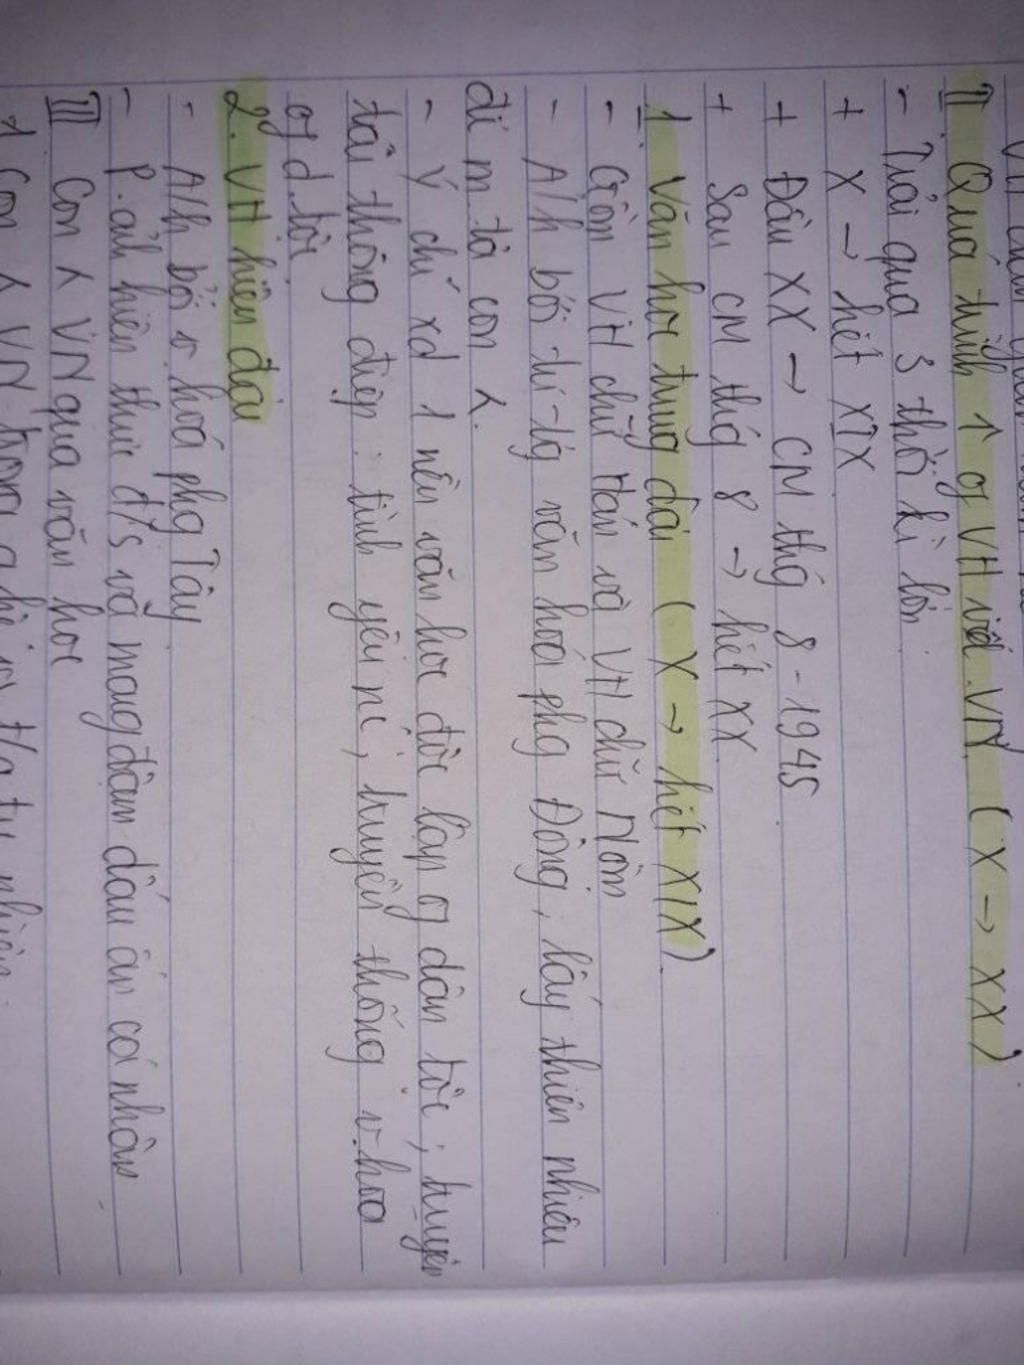 II Quá trình ↑ of VH viết VN (X → XX)
- Trải qua 3 thời kì lớn
+ X → hết XIX
+ Đầu XX → CM thg 8 - 1945
+ Sau CM thg 8 → hết XX
1. Văn học trung đại (X → hết XIX)
- Gồm VH chữ Hán và VH chữ Nôm
- A/h bởi tư-tg văn hoá phg Đông, lấy thiên nhiên
để m.tả con λ.
- Ý chí xd 1 nền văn học độc lập of dân tộc; truyền
tải thông điệp: tình yêu nc, truyền thống v.hoá
of d.tộc
2. VH hiện đại
- A/h bởi v.hoá phg Tây
- P.ánh hiện thực đ/s và mang đậm dấu ấn cá nhân
III Con λ VN qua văn học
1 Con λ VN trong q.hệ vs t/g tự nhiên